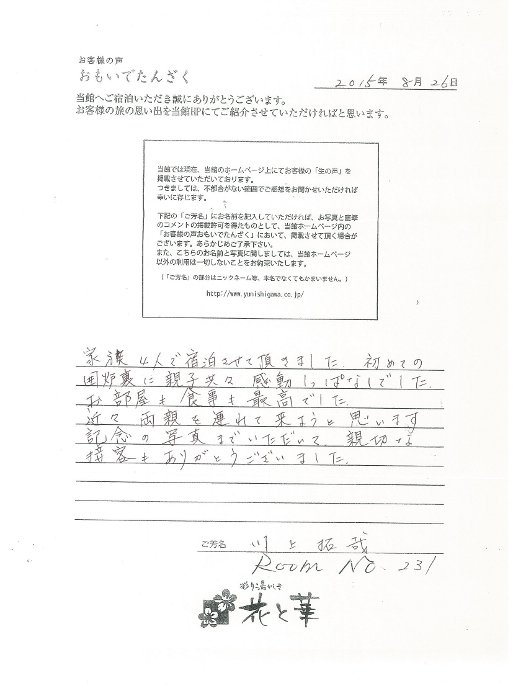 お客様の声
おもいでたんざく
2015年 8月 26日
当館へご宿泊いただき誠にありがとうございます。
お客様の旅の思い出を当館HPにてご紹介させていただければと思います。
当館では現在、当館のホームページ上にてお客様の「生の声」を
掲載させていただいております。
つきましては、不都合がない範囲でご感想をお聞かせいただければ
幸いに存じます。
下記の「ご芳名」にお名前を記入していただければ、お写真と直筆
のコメントの掲載許可を得たものとして、当館ホームページ内の
「お客様の声おもいでたんざく」において、掲載させて頂く場合が
ございます。あらかじめご了承下さい。
また、こちらのお名前と写真に関しましては、当館ホームページ
以外の利用は一切しないことをお約束いたします。
(「ご芳名」の部分はニックネーム等、本名でなくてもかまいません。)
http://www.yunishigawa.co.jp/
家族4人で宿泊させて頂きました。初めての
囲炉裏に親子共々感動しっぱなしでした。
お部屋も食事も最高でした。
近々両親を連れて来ようと思います
記念の写真までいただいて、親切な
接客もありがとうございました。
ご芳名 川上拓哉
Room No. 231
花と華